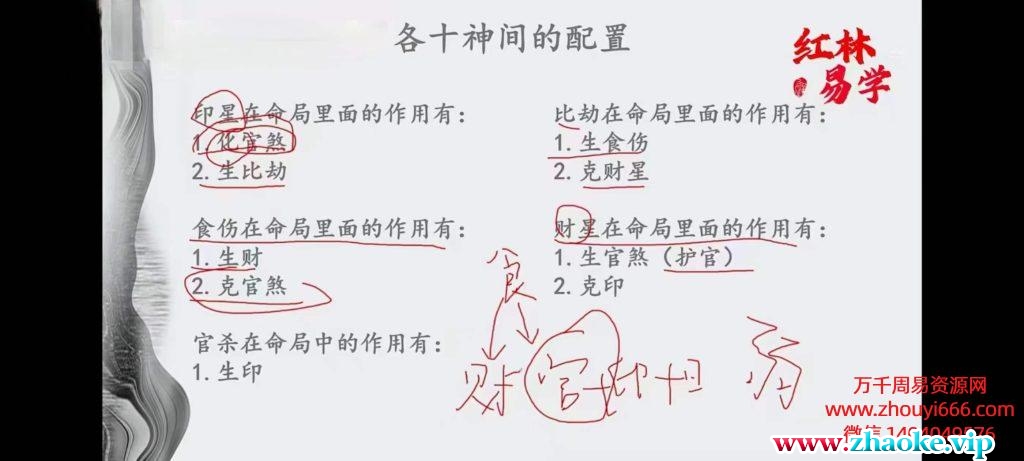 各十神间的配置
红林
易学
印星在命局里面的作用有：
1.化官煞
2.生比劫
比劫在命局里面的作用有：
1.生食伤
2.克财星
食伤在命局里面的作用有：
1.生财
2.克官煞
财星在命局里面的作用有：
1.生官煞（护官）
2.克印
官杀在命局中的作用有：
1.生印
食
财 官 印
万千周易资源网
www.zhouyi666.com
www.zhaoke.vip